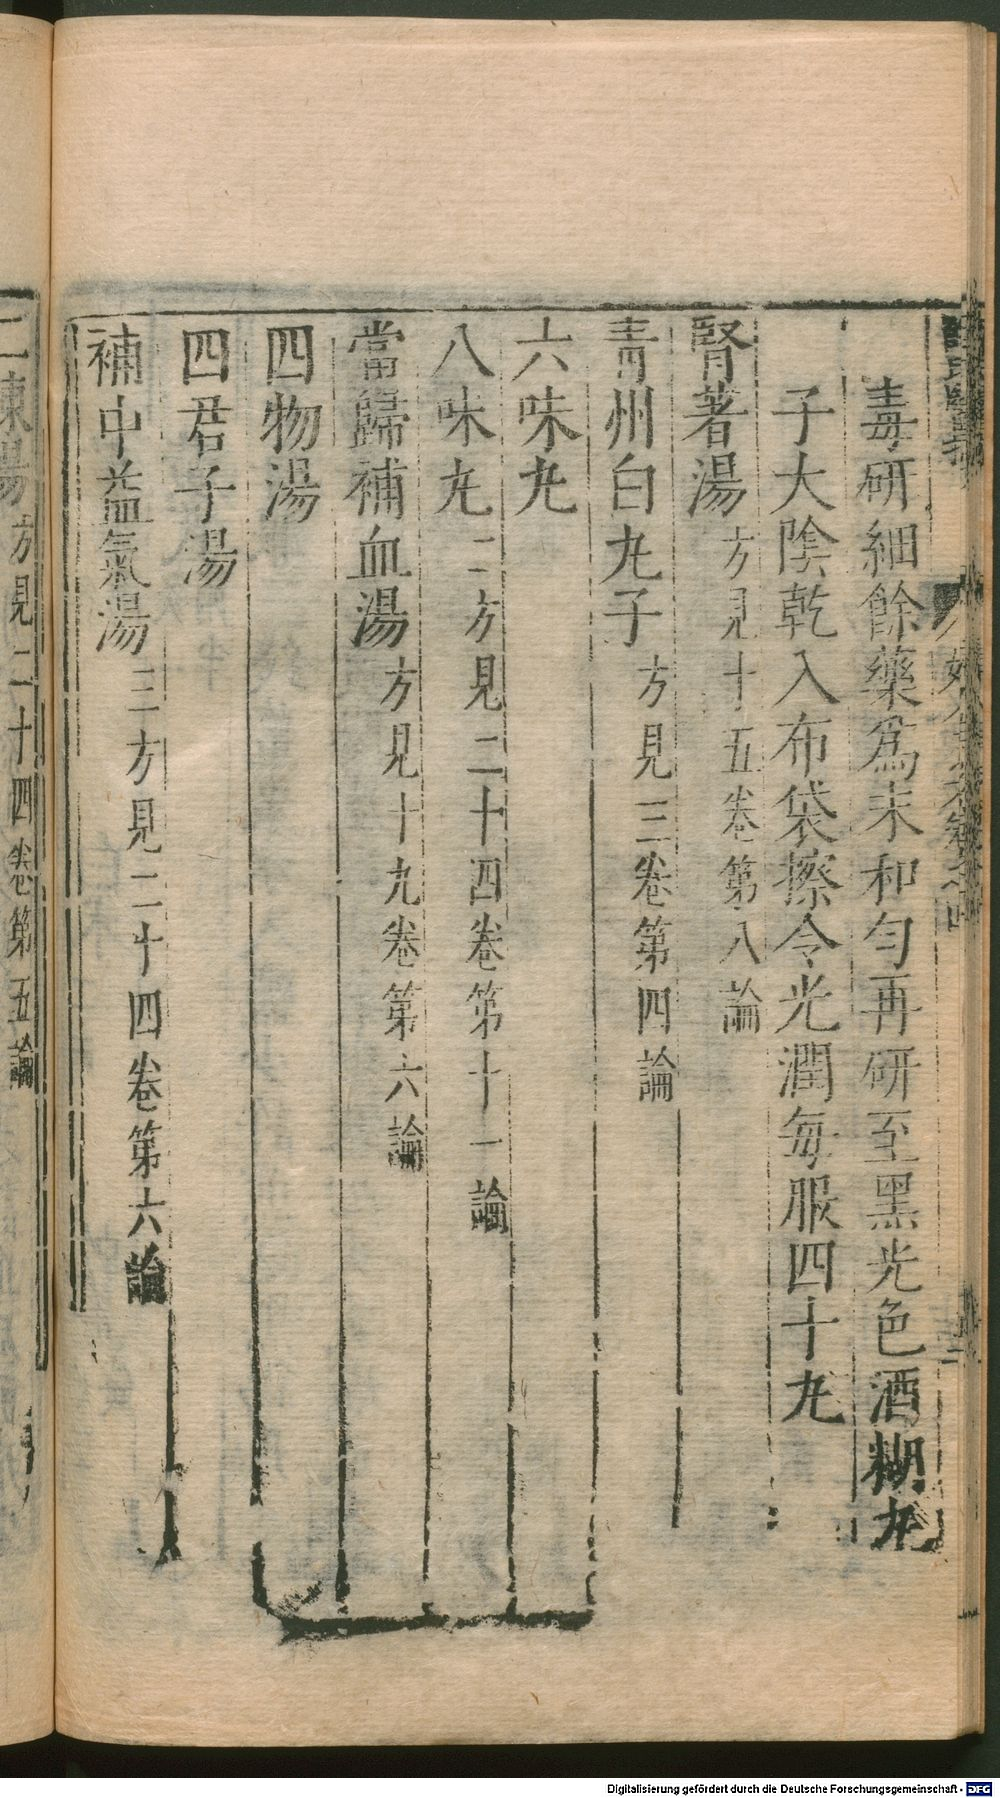 毒研細餘藥爲末和勻再研至黑光色酒糊丸
子大陰乾入布袋擦令光潤每服四十丸
腎著湯方見十五卷第八論
青州白丸子方見三卷第四論
六味丸
八味丸二方見二十四卷第十一論
當歸補血湯方見十九卷第六論
四物湯
四君子湯
補中益氣湯三方見二十四卷第六論
二陳湯方見二十四卷第五論
Digitalisierung gefördert durch die Deutsche Forschungsgemeinschaft - DFG